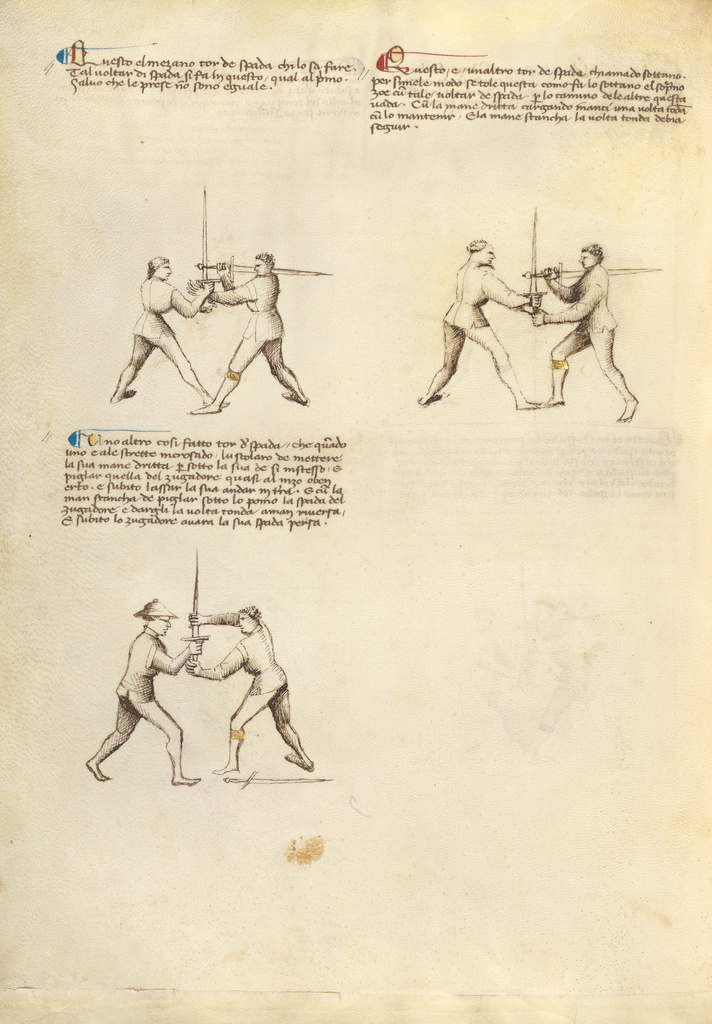 Questo el mezano tor de spada chi lo sa fare.
Tal voltar di spada si fa in questo, qual al p̃mo.
Salvo che le prese nō sono eguale.
Questo, e, un altro tor de spada, chiamado sottano.
per simele modo se tole questa como fa lo sottano el sop̃no
zoe cū tale voltar de spada. ꝑ lo camino dele altre questa
vada. Cū la mane dritta cargando inanci una volta tōda
cū lo mantenir. E la mane stancha la volta tonda debia
seguir.
Uno altro cosi fatto tor d' spada, che quādo
uno e ale strette incrosado, lu scolaro de mettere
la sua mane dritta ꝑ sotto la sua de si instesso, e
piglar quella del zugadore quasi al mezo o ben
erto. e subito lassar la sua andar in t'ra. E cū la
man stancha de piglar sotto lo pomo la spada del
zugadore e dargli la volta tonda a man riversa,
E subito lo zugadore avara la sua spada persa.